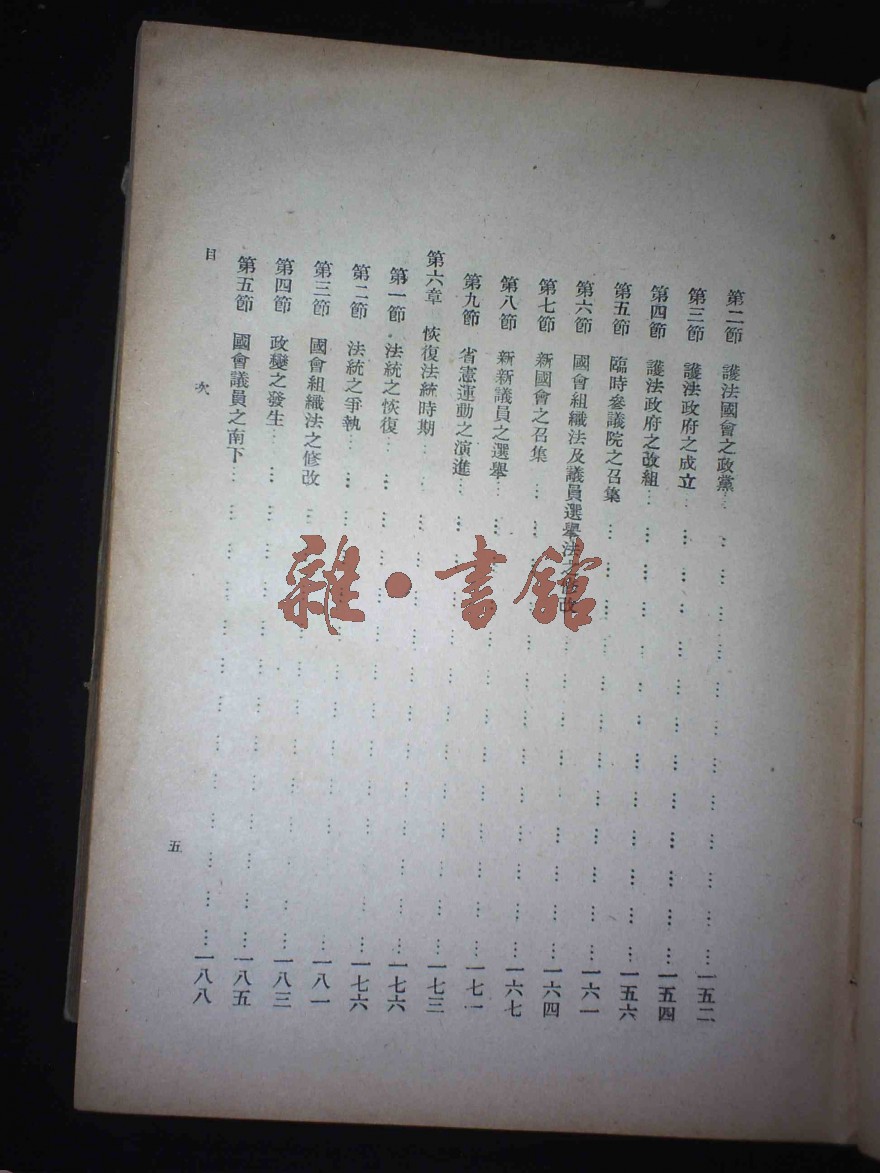 第二節 護法國會之政黨……一五二
第三節 護法政府之成立……一五四
第四節 護法政府之改組……一五六
第五節 臨時參議院之召集……一六一
第六節 國會組織法及議員選舉法之修改……一六四
第七節 新國會之召集……一六七
第八節 新新議員之選舉……一七一
第九節 省憲運動之演進……一七三
第六章 恢復法統時期……一七六
第一節 法統之恢復……一七六
第二節 法統之爭執……一八一
第三節 國會組織法之修改……一八三
第四節 政變之發生……一八五
第五節 國會議員之南下……一八八
目次
五
雜·書館